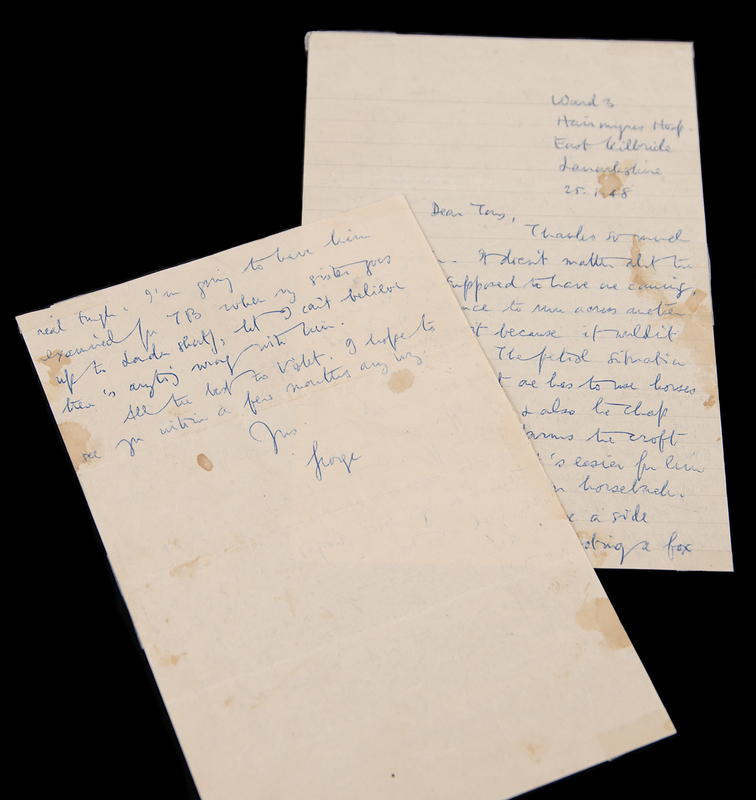 Ward 3
Hairmyres Hosp.
East Kilbride
Lanarkshire
25.1.48
Dear Tony,
Thanks so much
. It doesn't matter abt the
supposed to have one coming,
nce to run across another
because it wouldn't
The petrol situation
one has to use horses
& also the chap
farms the croft
it's easier for him
on horseback.
a side
a fox
real tough. I'm going to have him
examined for TB when my sister goes
up to London shortly, but I can't believe
there is anything wrong with him.
All the best to Violet. I hope to
see you within a few months anyway.
Yrs
George